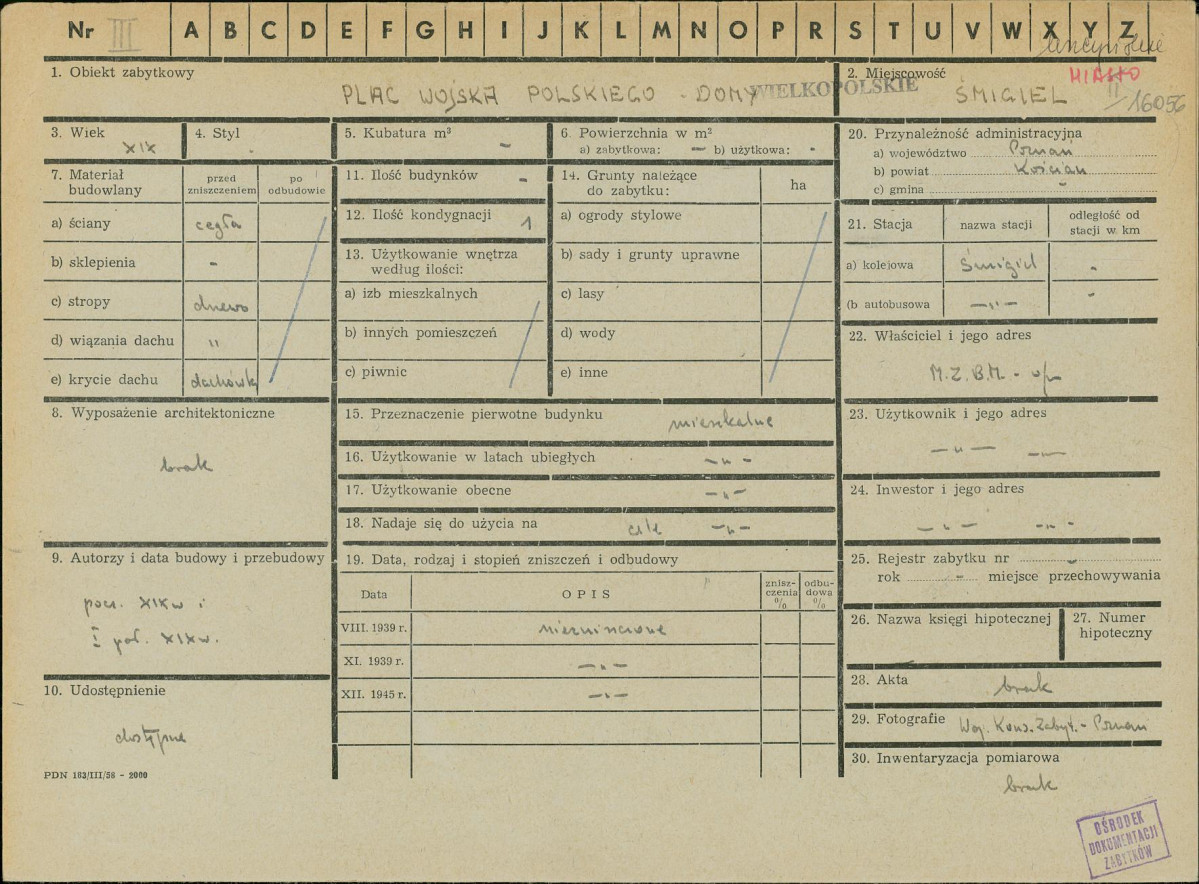 Nr III A B C D E F G H I J K L M N O P R S T U V W X Y Z
1. Obiekt zabytkowy
PLAC WOJSKA POLSKIEGO - DOMY
WIELKOPOLSKIE
2. Miejscowość
MIASTO
ŚMIGIEL
II/16056
3. Wiek
XIX
4. Styl
5. Kubatura m³
-
6. Powierzchnia w m²
a) zabytkowa: — b) użytkowa: -
7. Materiał budowlany
przed zniszczeniem
po odbudowie
a) ściany cegła
b) sklepienia -
c) stropy drewo
d) wiązania dachu "
e) krycie dachu dachówka
8. Wyposażenie architektoniczne
brak
9. Autorzy i data budowy i przebudowy
pocz. XIX w i
I poł. XIX w.
10. Udostępnienie
dostępne
PDN 183/III/58 - 2000
11. Ilość budynków -
12. Ilość kondygnacji 1
13. Użytkowanie wnętrza
według ilości:
a) izb mieszkalnych
b) innych pomieszczeń
c) piwnic
14. Grunty należące
do zabytku:
ha
a) ogrody stylowe
b) sady i grunty uprawne
c) lasy
d) wody
e) inne
15. Przeznaczenie pierwotne budynku mieszkalne
16. Użytkowanie w latach ubiegłych —"—
17. Użytkowanie obecne —"—
18. Nadaje się do użycia na cele —"—
19. Data, rodzaj i stopień zniszczeń i odbudowy
Data
OPIS
znisz-
czenia
%
odbu-
dowa
%
VIII. 1939 r. niezniszczone
XI. 1939 r. —"—
XII. 1945 r. —"—
20. Przynależność administracyjna
a) województwo Poznań
b) powiat Kościan
c) gmina -
21. Stacja
nazwa stacji
odległość od
stacji w km
a) kolejowa Śmigiel -
(b autobusowa —"— -
22. Właściciel i jego adres
M.Z.B.M. -
23. Użytkownik i jego adres
—"— —"—
24. Inwestor i jego adres
—"— —"—
25. Rejestr zabytku nr -
rok - miejsce przechowywania
26. Nazwa księgi hipotecznej
27. Numer
hipoteczny
28. Akta
brak
29. Fotografie Woj. Kons. Zabyt. - Poznań
30. Inwentaryzacja pomiarowa
brak
OŚRODEK
DOKUMENTACJI
ZABYTKÓW